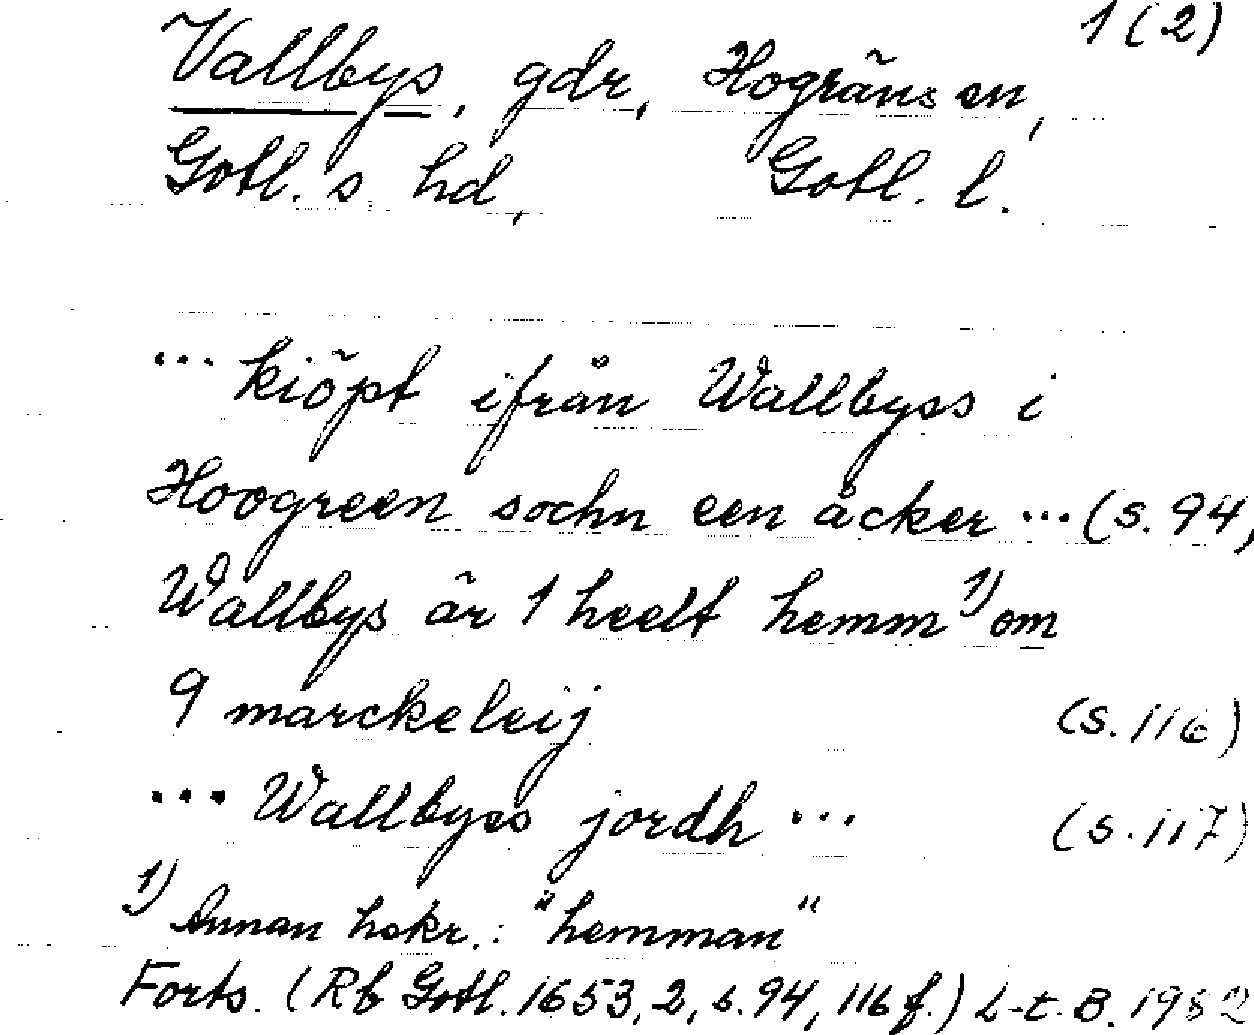 1 (2)
Vallbys, gdr, Hogräns sn,
Gotl. s. hd, Gotl. l.
... kiöpt ifrån Wallbyss i
Hoogreen sochn een åcker ... (s. 94,
Wallbys är 1 heelt hemm 1) om
9 marckeleij (s. 116)
... Wallbyss jordh ... (s. 117)
1) Annan hskr.: "hemman"
Forts. (Rb Gotl. 1653, 2, s. 94, 116 f.) L-t. B. 1982